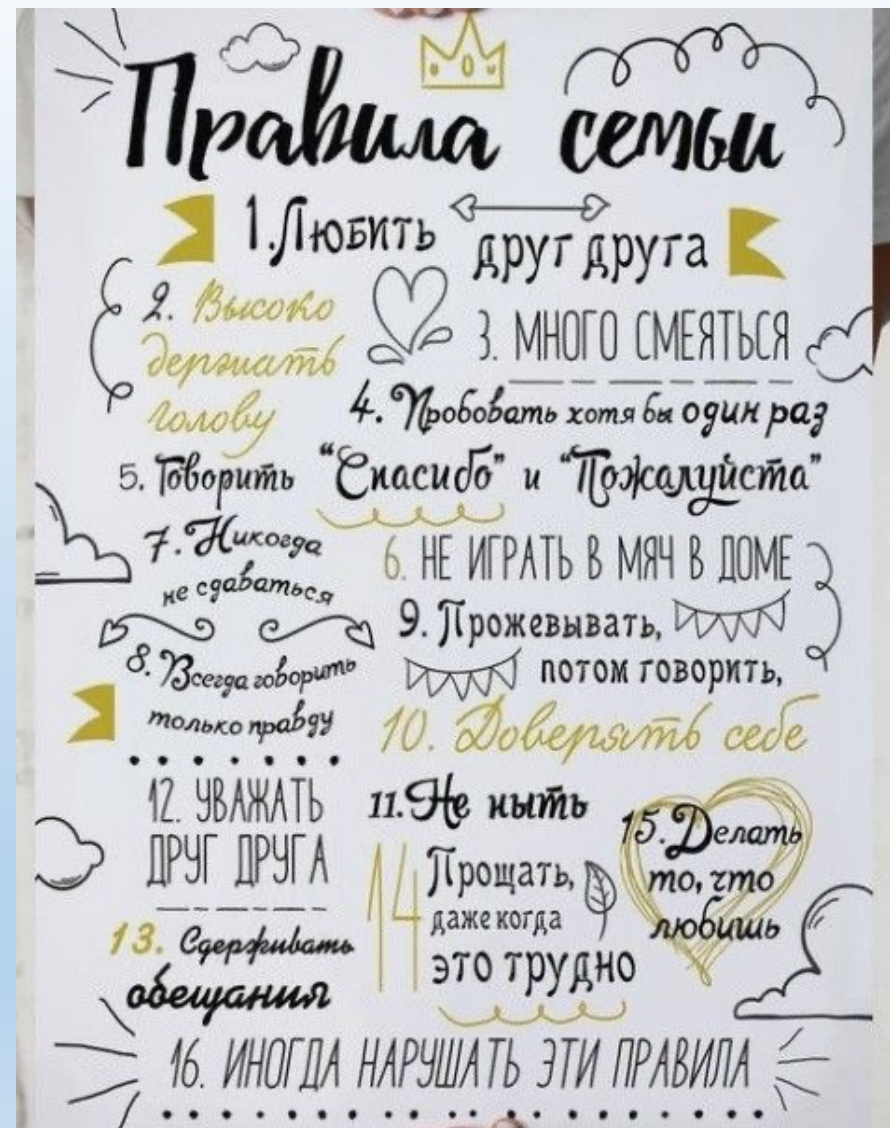 Правила семьи
1. Любить друг друга
2. Высоко
держать
голову
3. МНОГО СМЕЯТЬСЯ
4. Пробовать хотя бы один раз
5. Говорить "Спасибо" и "Пожалуйста"
7. Никогда
не сдаваться
6. НЕ ИГРАТЬ В МЯЧ В ДОМЕ
8. Всегда говорить
только правду
9. Прожевывать,
потом говорить,
10. Доверять себе
12. УВАЖАТЬ
ДРУГ ДРУГА
11. Не ныть
13. Сдерживать
обещания
14 Прощать,
даже когда
это трудно
15. Делать
то, что
любишь
16. ИНОГДА НАРУШАТЬ ЭТИ ПРАВИЛА